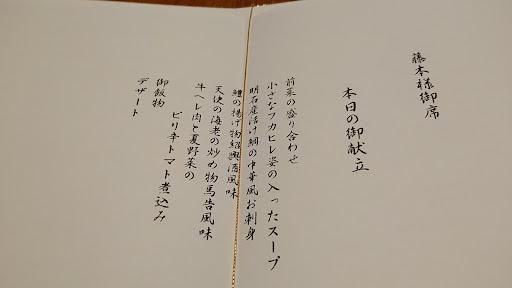 藤本様御席
本日の御献立
前菜の盛り合わせ
小さなフカヒレ姿の入ったスープ
明石産活け鯛の中華風お刺身
鱧の揚げ物紹興酒風味
天使の海老の炒め物馬告風味
牛ヘレ肉と夏野菜の
ピリ辛トマト煮込み
御飯物
デザート